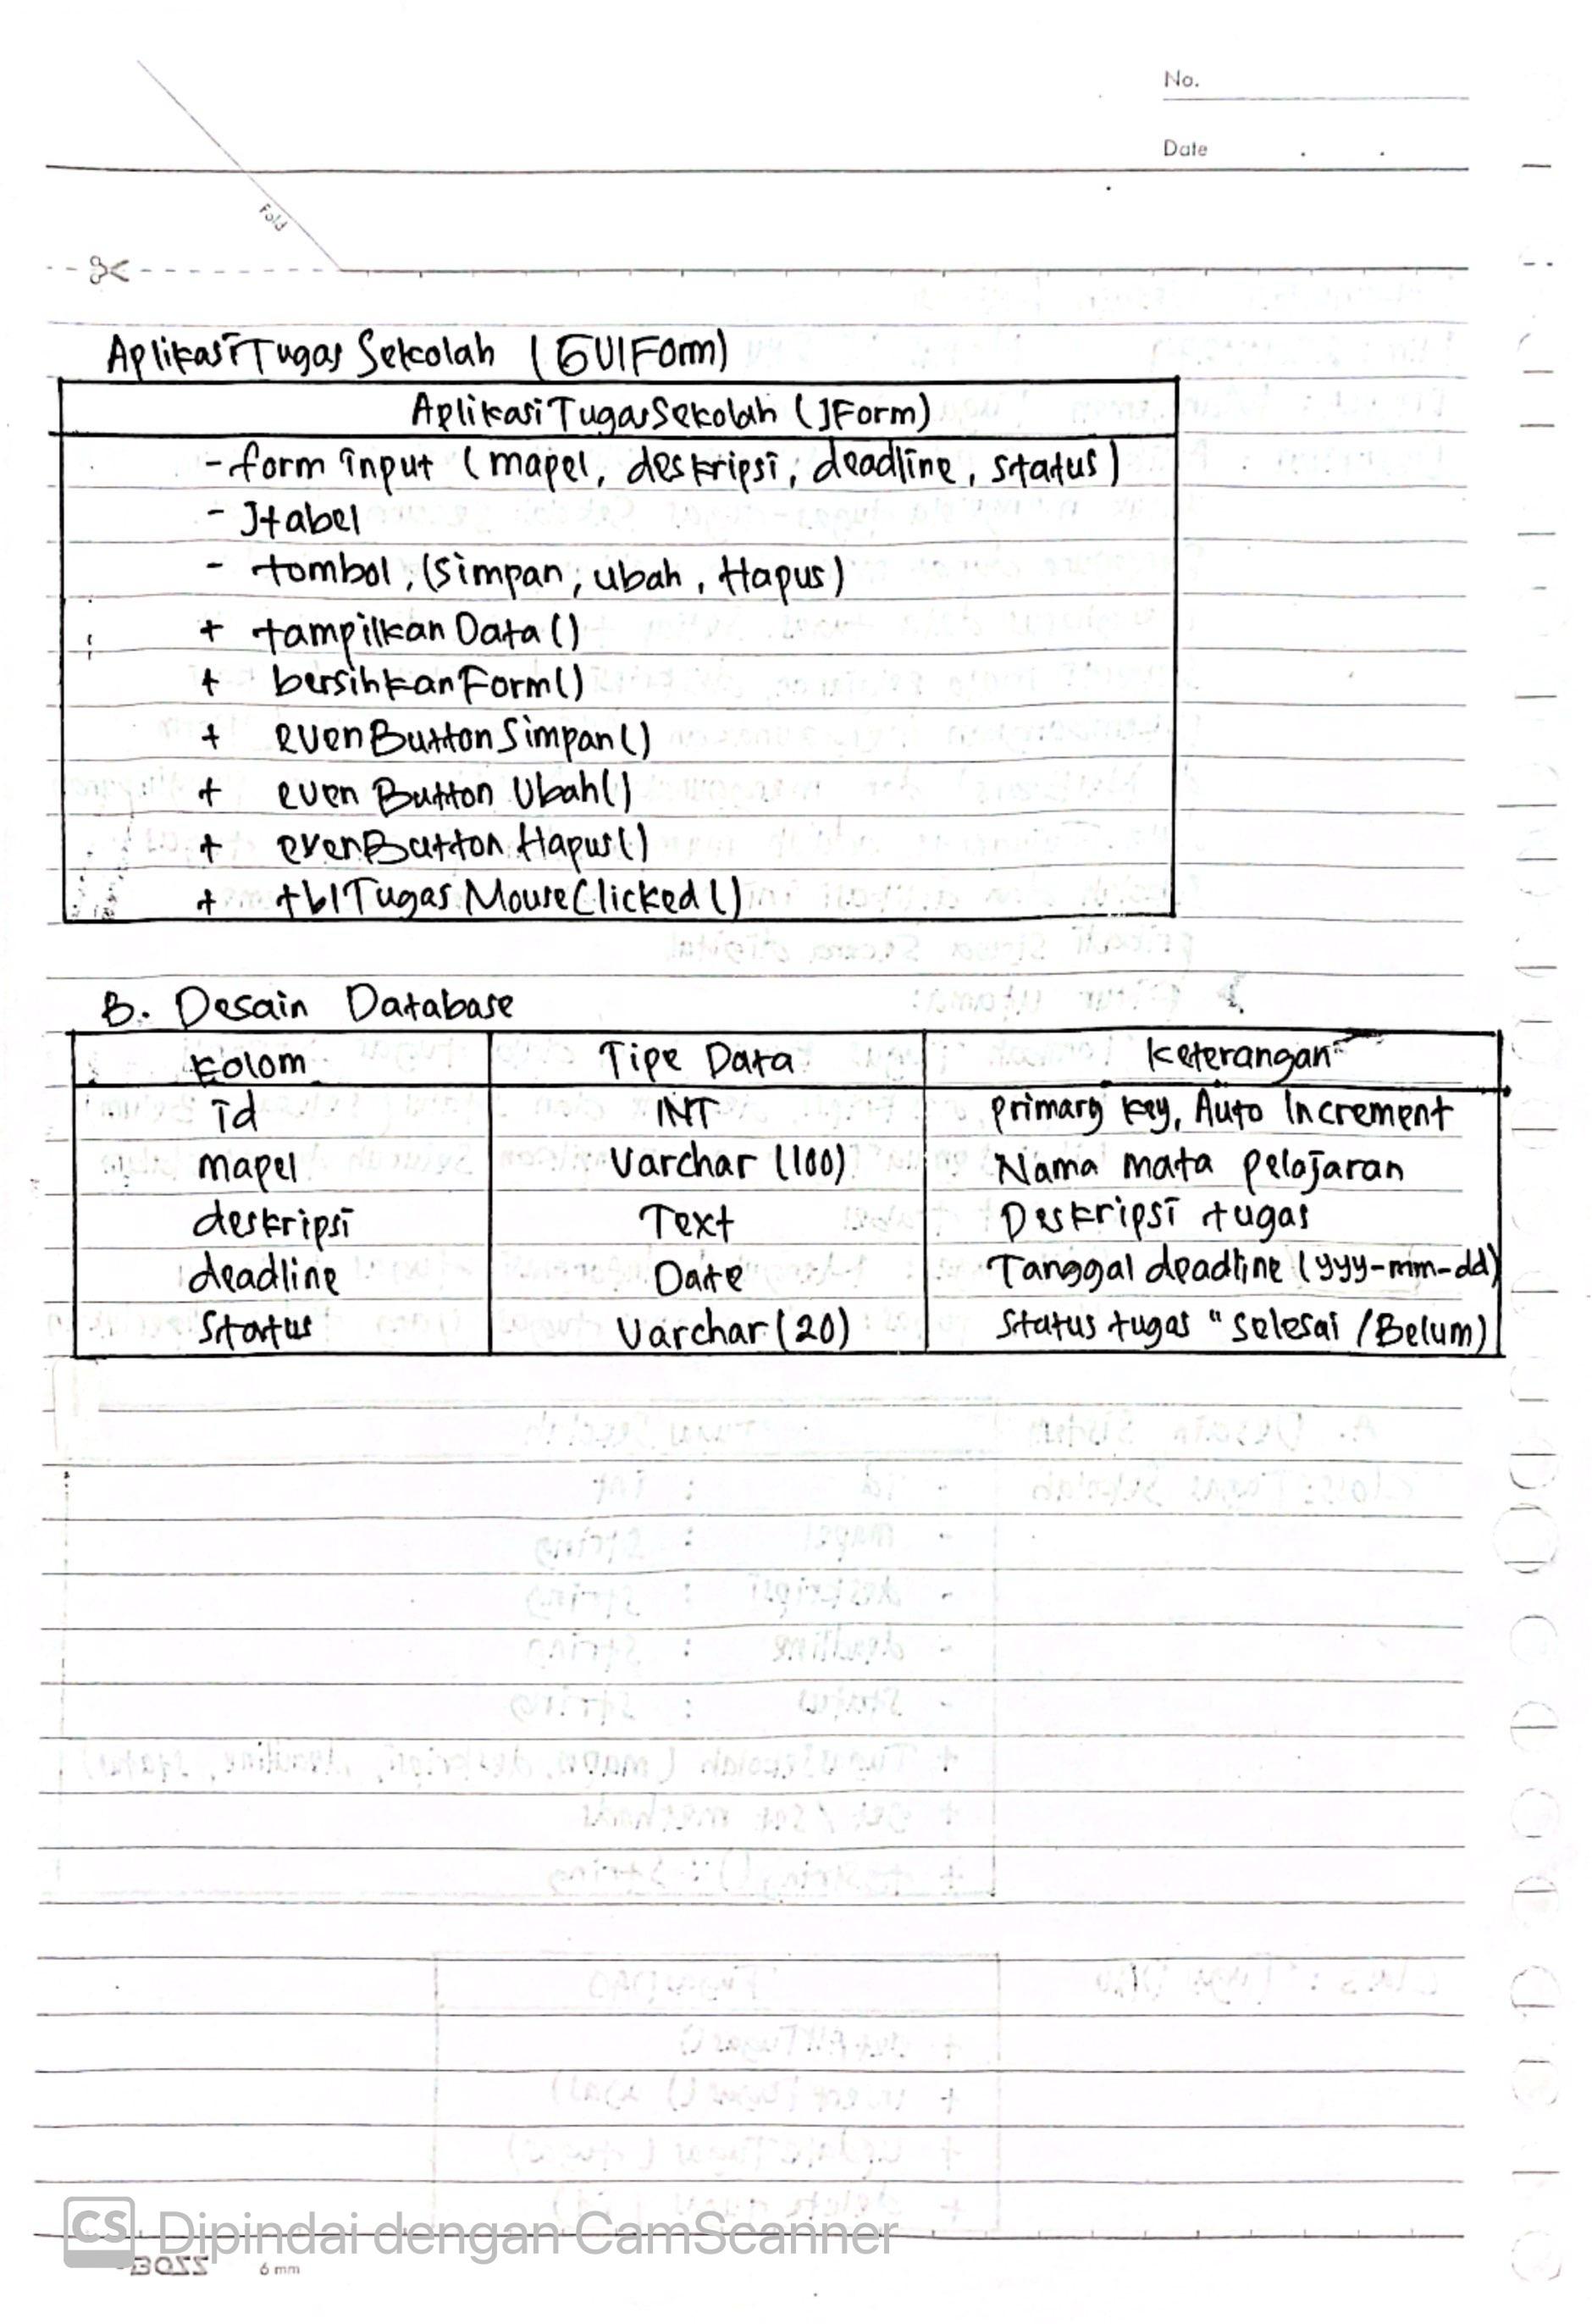 No.
Date
Fold
AplikasiTugas Sekolah (GUIForm)
AplikasiTugasSekolah (JForm)
- form input (mapel, deskripsi, deadline, status)
- Jtabel
- tombol, (Simpan, ubah, Hapus)
+ tampilkan Data ()
+ bersihkanForm()
+ evenButtonSimpan()
+ even Button Ubah()
+ evenButton Hapus()
+ tblTugas MouseClicked ()
B. Desain Database
Kolom Tipe Data Keterangan
id INT primary key, Auto Increment
mapel Varchar (100) Nama mata pelajaran
deskripsi Text Deskripsi tugas
deadline Date Tanggal deadline (yyy-mm-dd)
Status Varchar (20) Status tugas " Selesai / Belum)
CS Dipindai dengan CamScanner
BOSS 6 mm